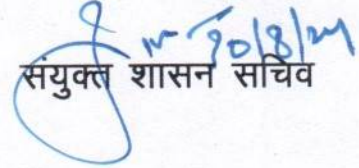 20/8/24
संयुक्त शासन सचिव